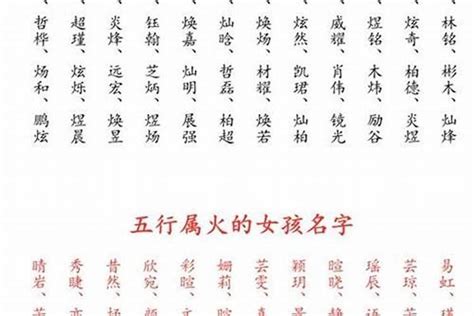 、林铭、彬木、灿烽
、炫奇、柏德、炎煜
、煜铭、木炜、励谷
、威耀、肖伟、镜光
、炫然、凯珺、灿灿
、焕炀、材耀、焕若
、灿晗、哲磊、柏超
、焕嘉、灿明、展强
、钰翰、芝炳、煜炀
、炎烽、远宏、焕昱
、超瑾、炫烁、煜晨
、哲桦、炀和、鹏炫
五行属火的女孩名字
易虹、
芸琼、
瑶辰、
暄晓、
颖玥、
芸雯、
姗莉、
彩暄、
欣宛、
昔然、
秀睫、
晴岩、